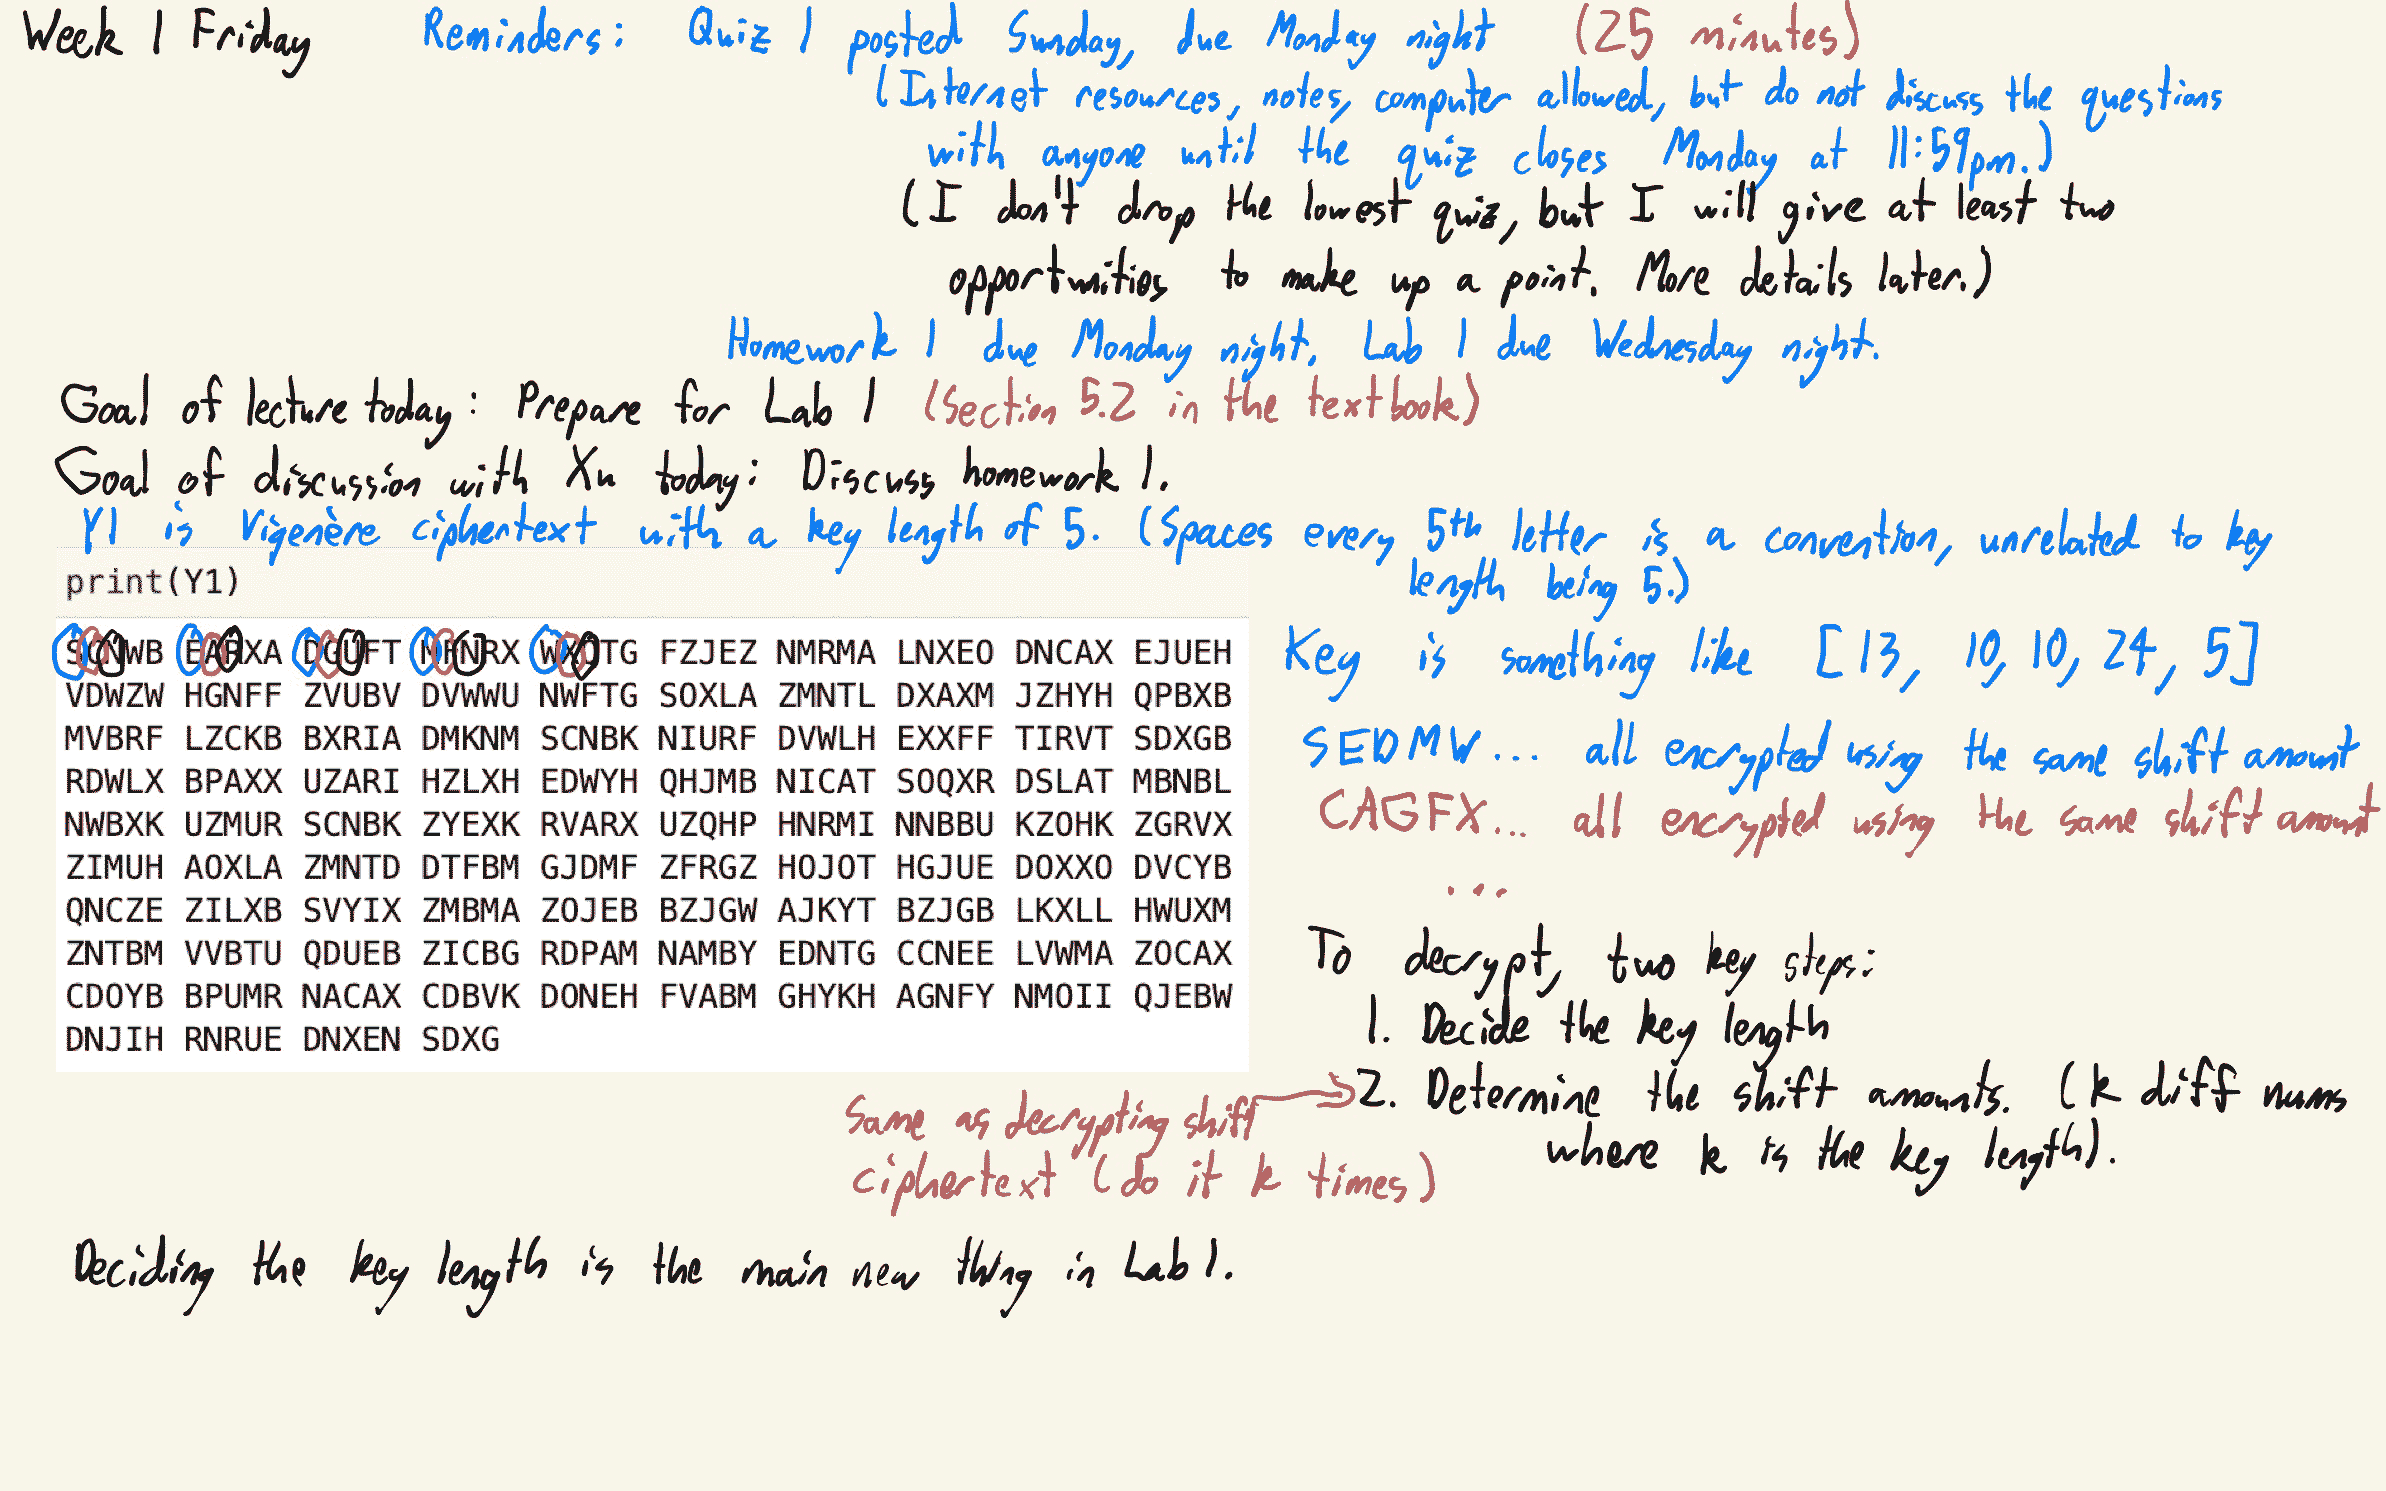 Week 1 Friday Reminders: Quiz 1 posted Sunday, due Monday night (25 minutes)
(Internet resources, notes, computer allowed, but do not discuss the questions
with anyone until the quiz closes Monday at 11:59pm.)
(I don't drop the lowest quiz, but I will give at least two
opportunities to make up a point. More details later.)
Homework 1 due Monday night, Lab 1 due Wednesday night.
Goal of lecture today: Prepare for Lab 1 (Section 5.2 in the textbook)
Goal of discussion with Xu today: Discuss homework 1.
Y1 is Vigenère ciphertext with a key length of 5. (Spaces every 5th letter is a convention, unrelated to key
length being 5.)
print(Y1)
SCNWB EARXA DGUFT MFNRX WXDTG FZJEZ NMRMA LNXEO DNCAX EJUEH
VDWZW HGNFF ZVUBV DVWWU NWFTG SOXLA ZMNTL DXAXM JZHYH QPBXB
MVBRF LZCKB BXRIA DMKNM SCNBK NIURF DVWLH EXXFF TIRVT SDXGB
RDWLX BPAXX UZARI HZLXH EDWYH QHJMB NICAT SOQXR DSLAT MBNBL
NWBXK UZMUR SCNBK ZYEXK RVARX UZQHP HNRMI NNBBU KZOHK ZGRVX
ZIMUH AOXLA ZMNTD DTFBM GJDMF ZFRGZ HOJOT HGJUE DOXXO DVCYB
QNCZE ZILXB SVYIX ZMBMA ZOJEB BZJGW AJKYT BZJGB LKXLL HWUXM
ZNTBM VVBTU QDUEB ZICBG RDPAM NAMBY EDNTG CCNEE LVWMA ZOCAX
CDOYB BPUMR NACAX CDBVK DONEH FVABM GHYKH AGNFY NMOII QJEBW
DNJIH RNRUE DNXEN SDXG
Key is something like [13, 10, 10, 24, 5]
SEDMW... all encrypted using the same shift amount
CAGFX... all encrypted using the same shift amount
...
To decrypt, two key steps:
1. Decide the key length
2. Determine the shift amounts. (k diff nums
where k is the key length).
Same as decrypting shift
ciphertext (do it k times)
Deciding the key length is the main new thing in Lab 1.